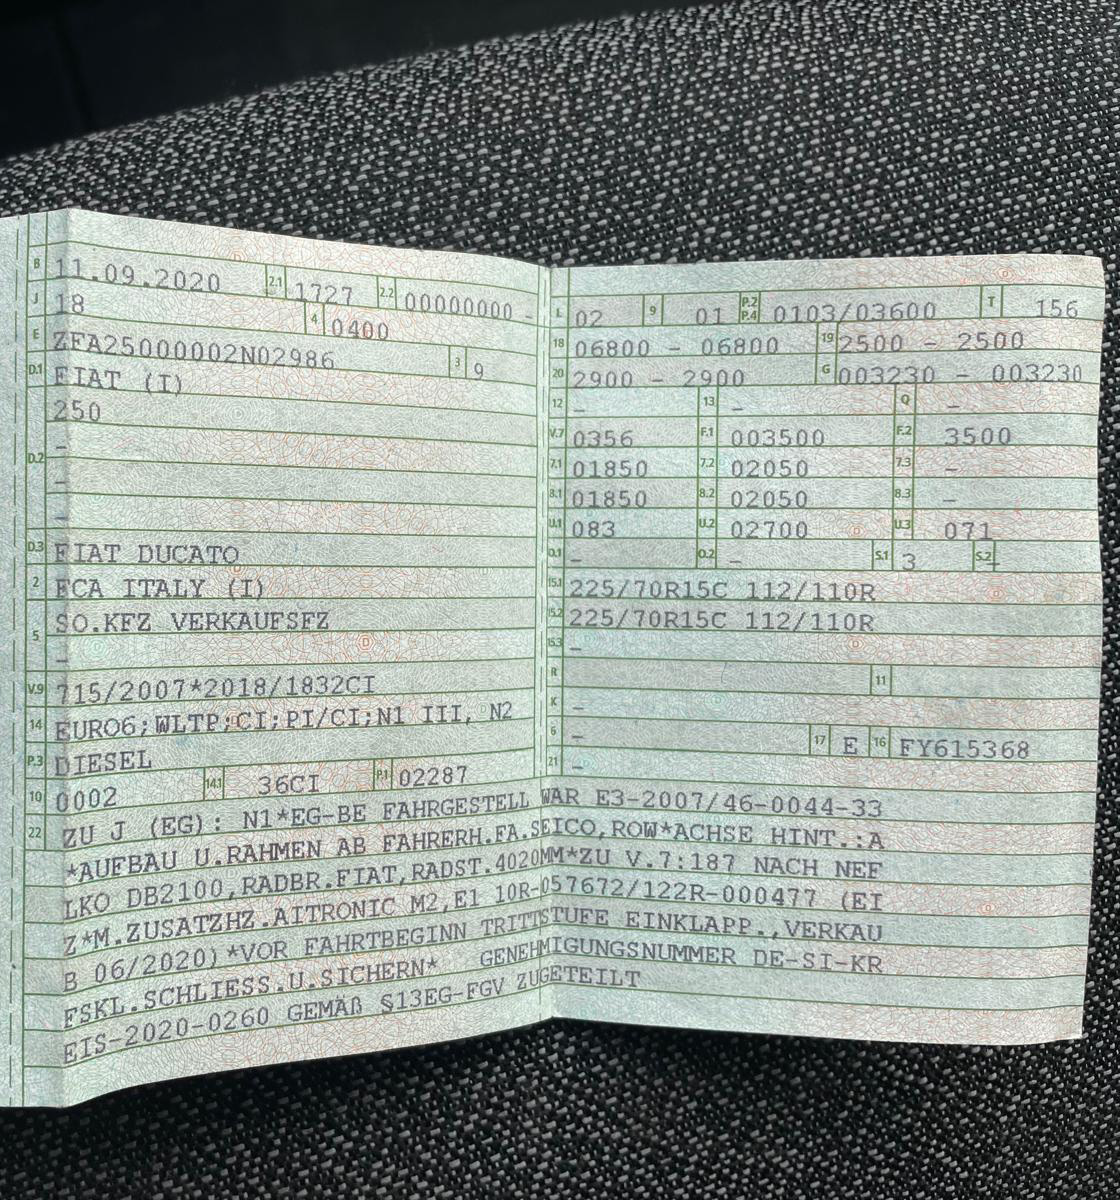 B 11.09.2020 2.1 1727 2.2 00000000 -
J 18 4 0400
E ZFA25000002N02986 3 9
D.1 FIAT (I)
250
D.2 -
-
-
D.3 FIAT DUCATO
2 FCA ITALY (I)
5 SO.KFZ VERKAUFSFZ
-
V.9 715/2007*2018/1832CI
14 EURO6;WLTP;CI;PI/CI;N1 III, N2
P.3 DIESEL
10 0002 14.1 36CI P.1 02287
L 02 9 01 P.2 P.4 0103/03600 T 156
18 06800 - 06800 19 2500 - 2500
20 2900 - 2900 G 003230 - 003230
12 - 13 - Q -
V.7 0356 F.1 003500 F.2 3500
7.1 01850 7.2 02050 7.3 -
8.1 01850 8.2 02050 8.3 -
U.1 083 U.2 02700 U.3 071
O.1 - O.2 - S.1 3 S.2 -
15.1 225/70R15C 112/110R
15.2 225/70R15C 112/110R
15.3 -
R 11
K -
6 - 17 E 16 FY615368
21 -
22 ZU J (EG): N1*EG-BE FAHRGESTELL WAR E3-2007/46-0044-33
*AUFBAU U.RAHMEN AB FAHRERH.FA.SEICO,ROW*ACHSE HINT.:A
LKO DB2100,RADBR.FIAT,RADST.4020MM*ZU V.7:187 NACH NEF
Z*M.ZUSATZHZ.AITRONIC M2,E1 10R-057672/122R-000477 (EI
B 06/2020)*VOR FAHRTBEGINN TRITTSTUFE EINKLAPP.,VERKAU
FSKL.SCHLIESS.U.SICHERN* GENEHMIGUNGSNUMMER DE-SI-KR
EIS-2020-0260 GEMÄß §13EG-FGV ZUGETEILT